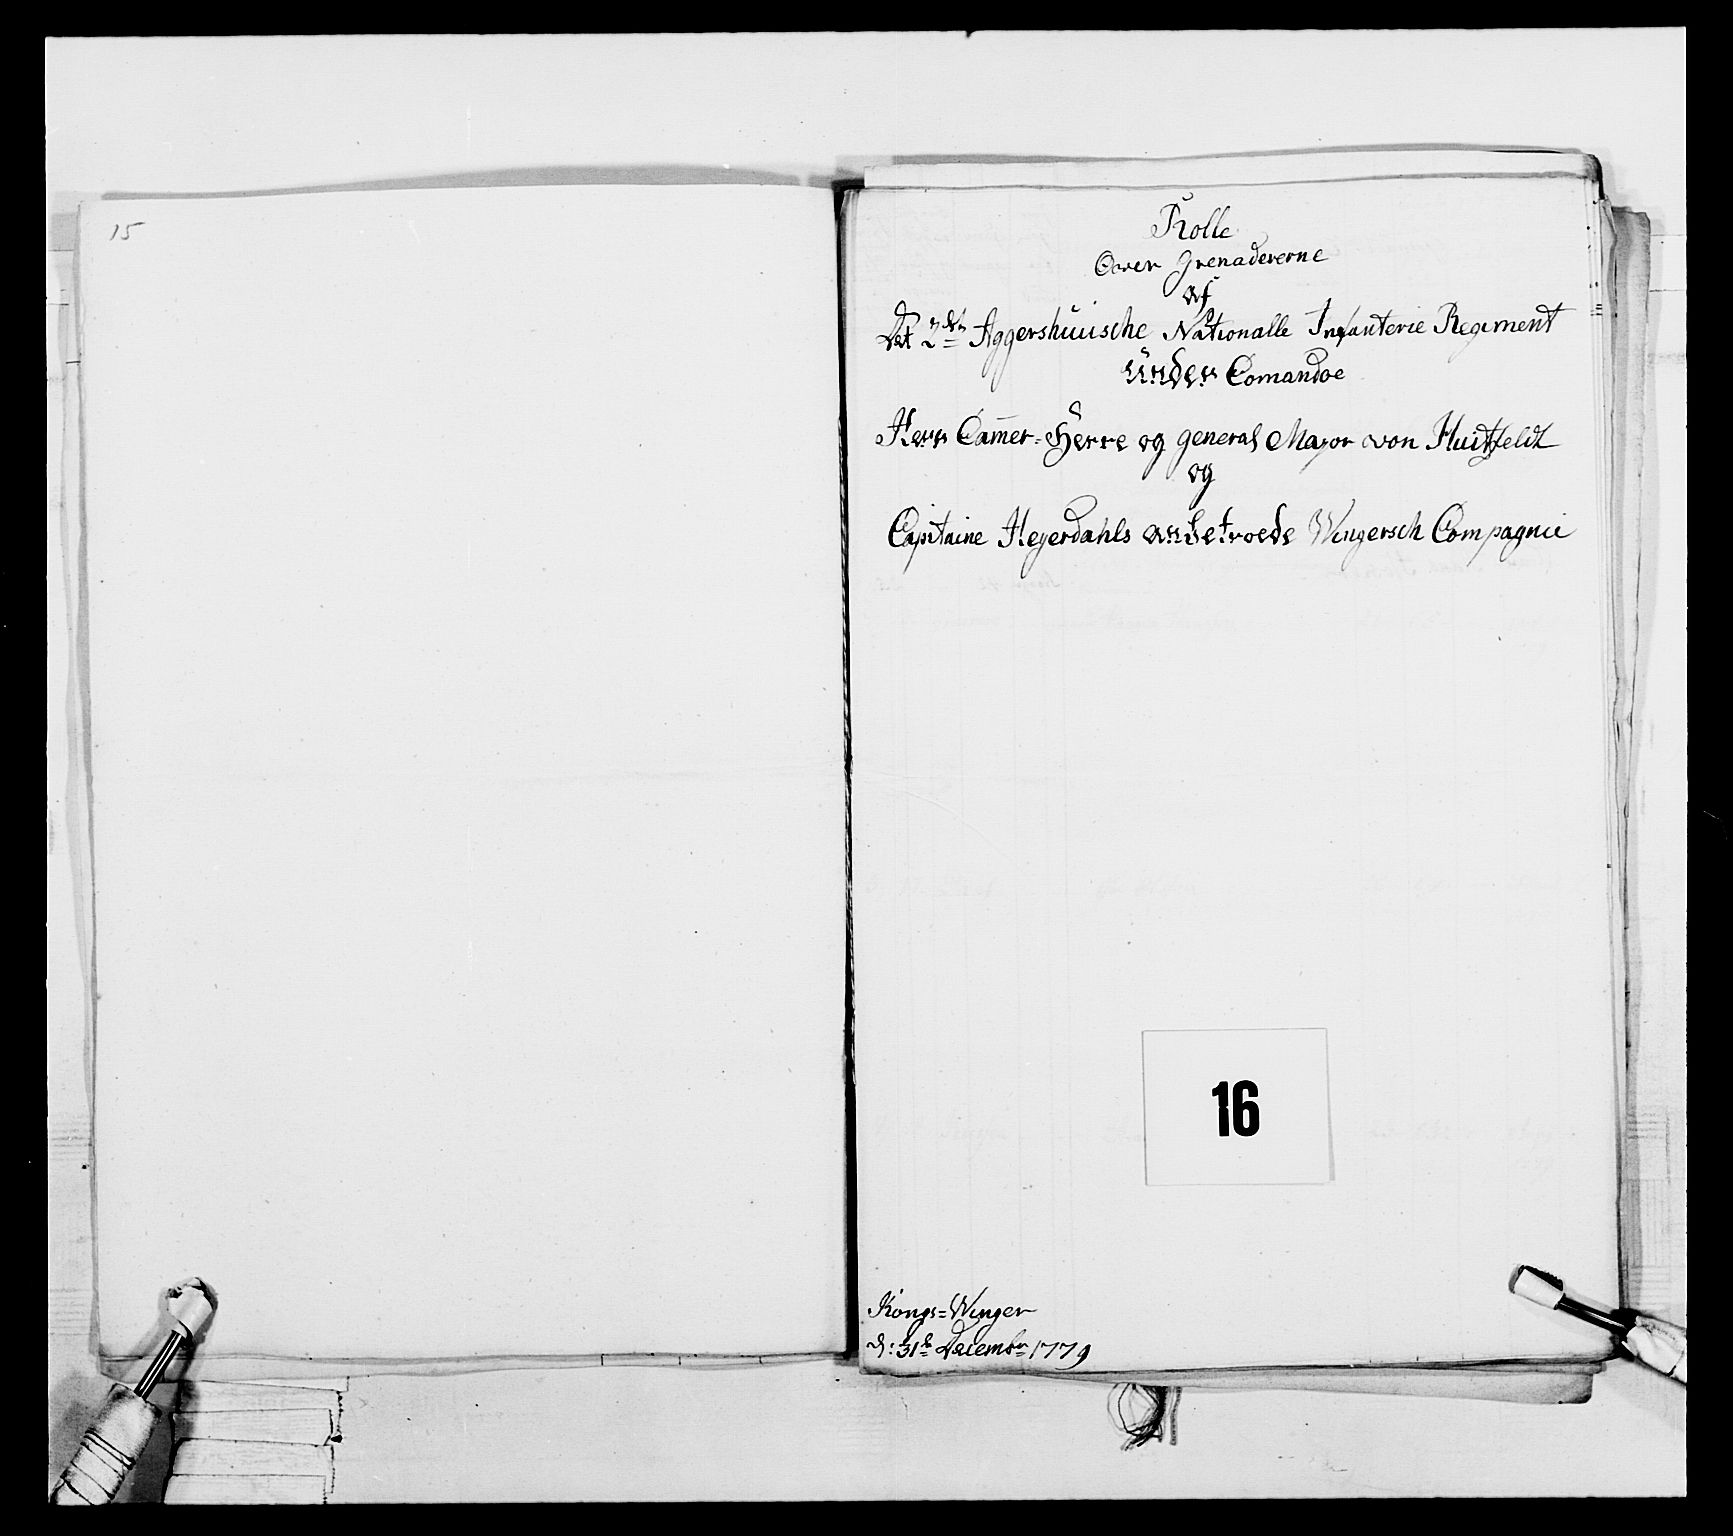 15
Rolle
Over Grenadererne
af
Det 2det Aggershuusische Nationalle Infanterie Regiment
under Comandoe
Herr Camer-Herre og general Major von Huitfeldt
og
Capitaine Heyerdahls anbetroede Wingersch Compagnie
16
Kongs=Winger
d: 31te Decembr 1779